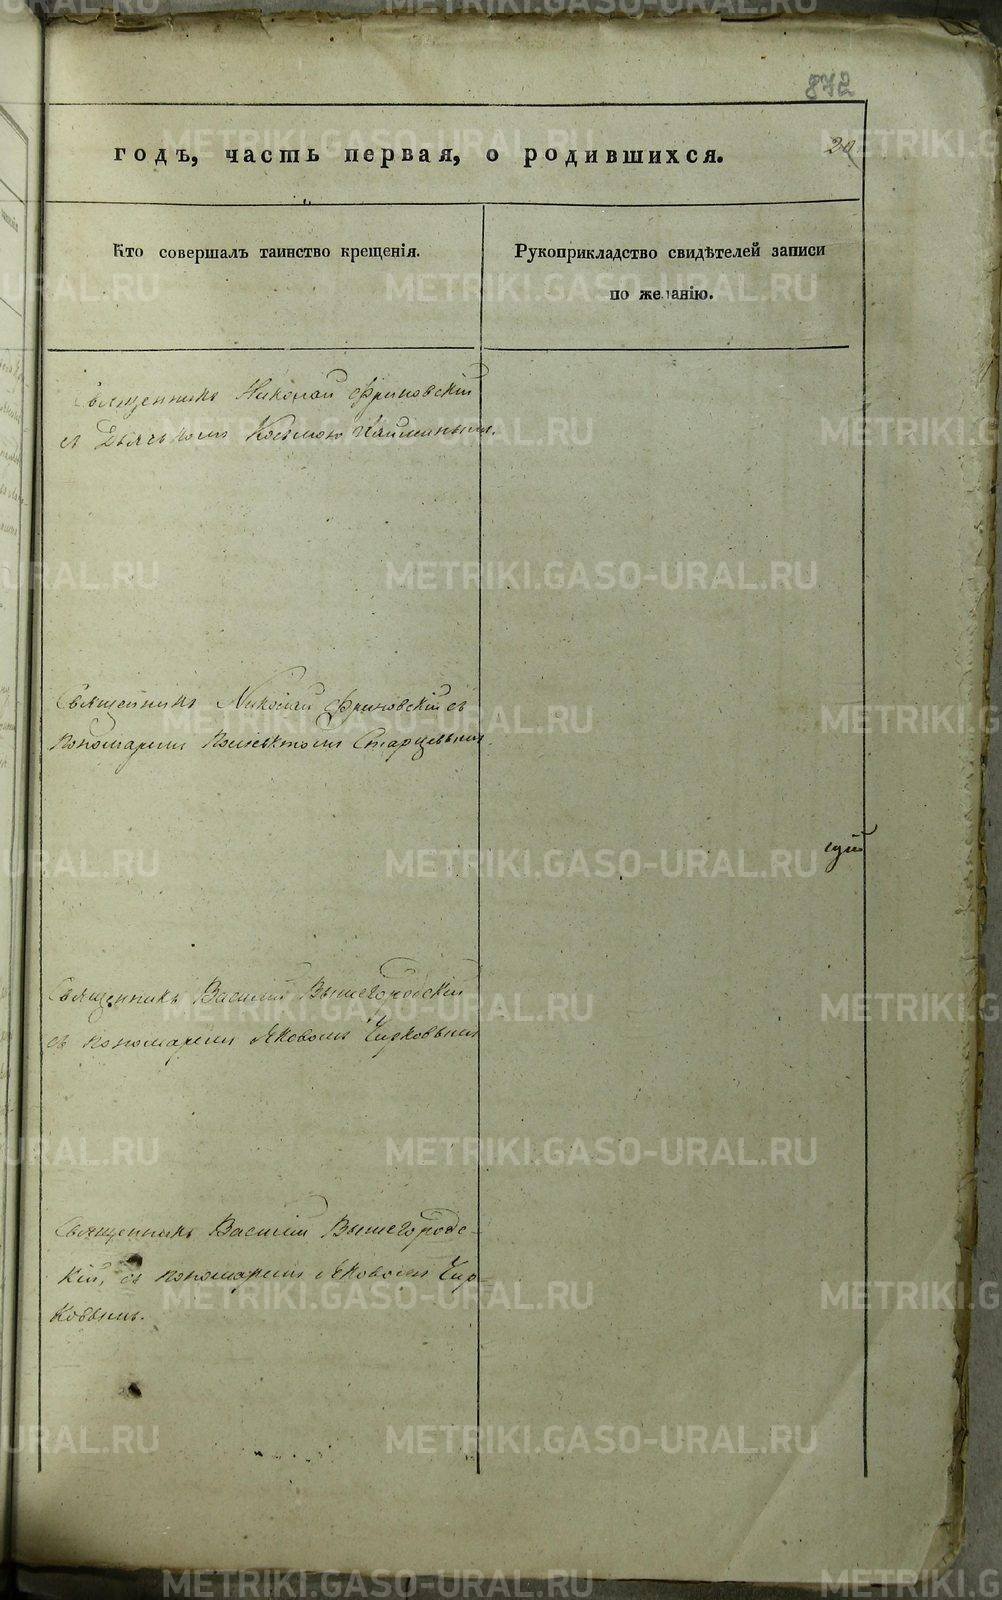 872
годъ, часть первая, о родившихся.
20
Кто совершалъ таинство крещенія.
Рукоприкладство свидѣтелей записи
по желанію.
Священникъ Николай Фриновскій
съ Дьячкомъ Косьмою
Священникъ Николай Фриновскій съ
пономаремъ Старцевымъ
Священникъ Василій Вышегородскій
съ пономаремъ Яковомъ Чирковымъ
Священникъ Василій Вышегородс-
кій, съ пономаремъ Яковомъ Чир-
ковымъ.
METRIKI.GASO-URAL.RU